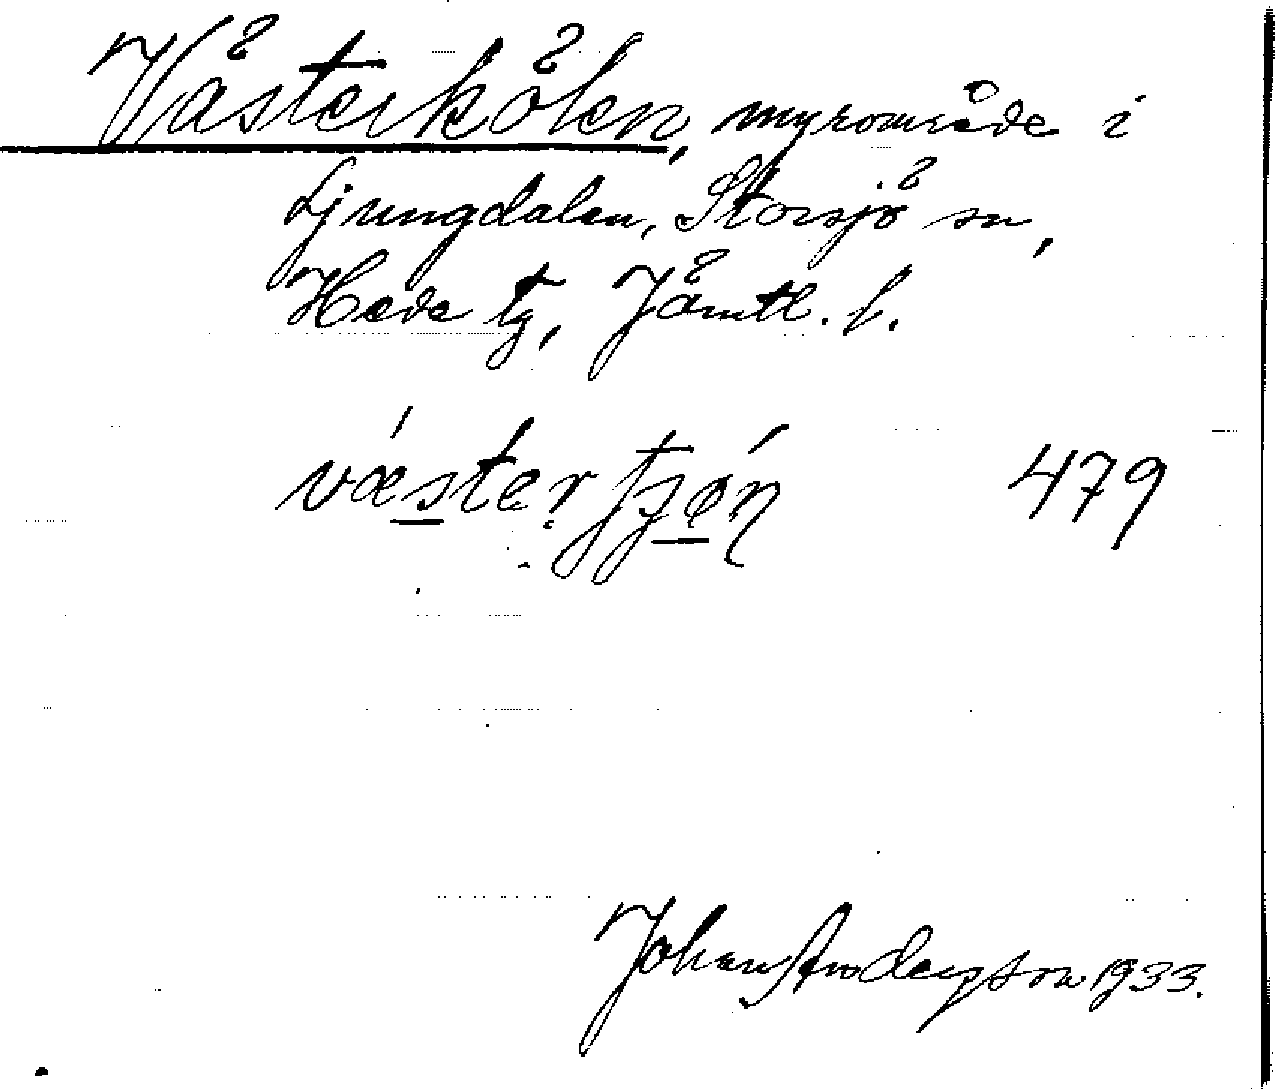 Västerkölen, myrområde i
Ljungdalen, Storsjö sn,
Hede tg, Jämtl. l.
479
Johan Anderson 1933.